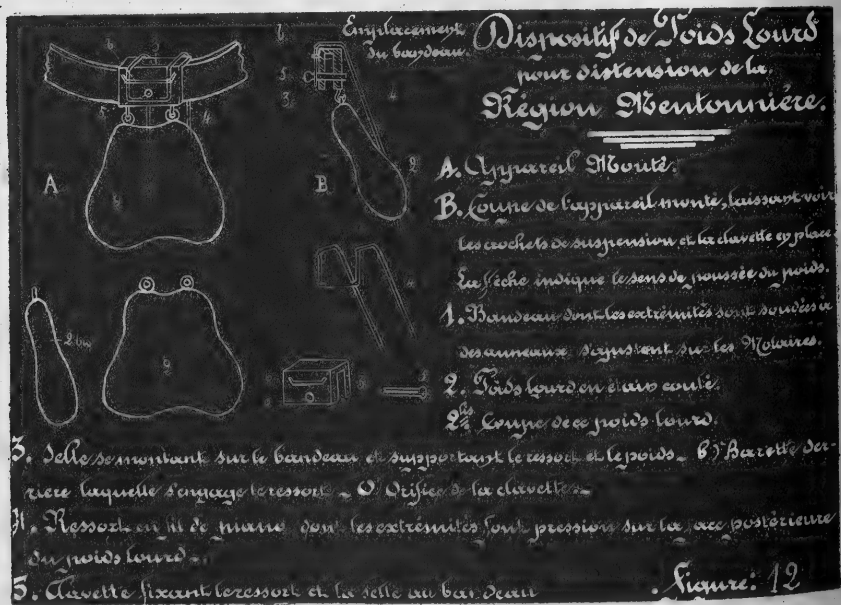 Emplacement
du bandeau.
Dispositif de Poids Lourd
pour distension de la
Région Mentonnière.
A. Appareil Monté.
B. Coupe de l'appareil monté, laissant voir
les crochets de suspension et la clavette en place
La flèche indique le sens de poussée du poids.
1. Bandeau dont les extrémités sont soudées à
des anneaux s'ajustent sur les Molaires.
2. Poids lourd en étain coulé.
2bis Coupe de ce poids lourd.
3. Selle se montant sur le bandeau et supportant le ressort et le poids _ b) Barette der-
rière laquelle s'engage le ressort _ O) Orifice de la clavette _
4. Ressort en fil de piano dont les extrémités font pression sur la face postérieure
du poids lourd _
5. Clavette fixant le ressort et la selle au bandeau
Figure: 12
A
B
2
2bis